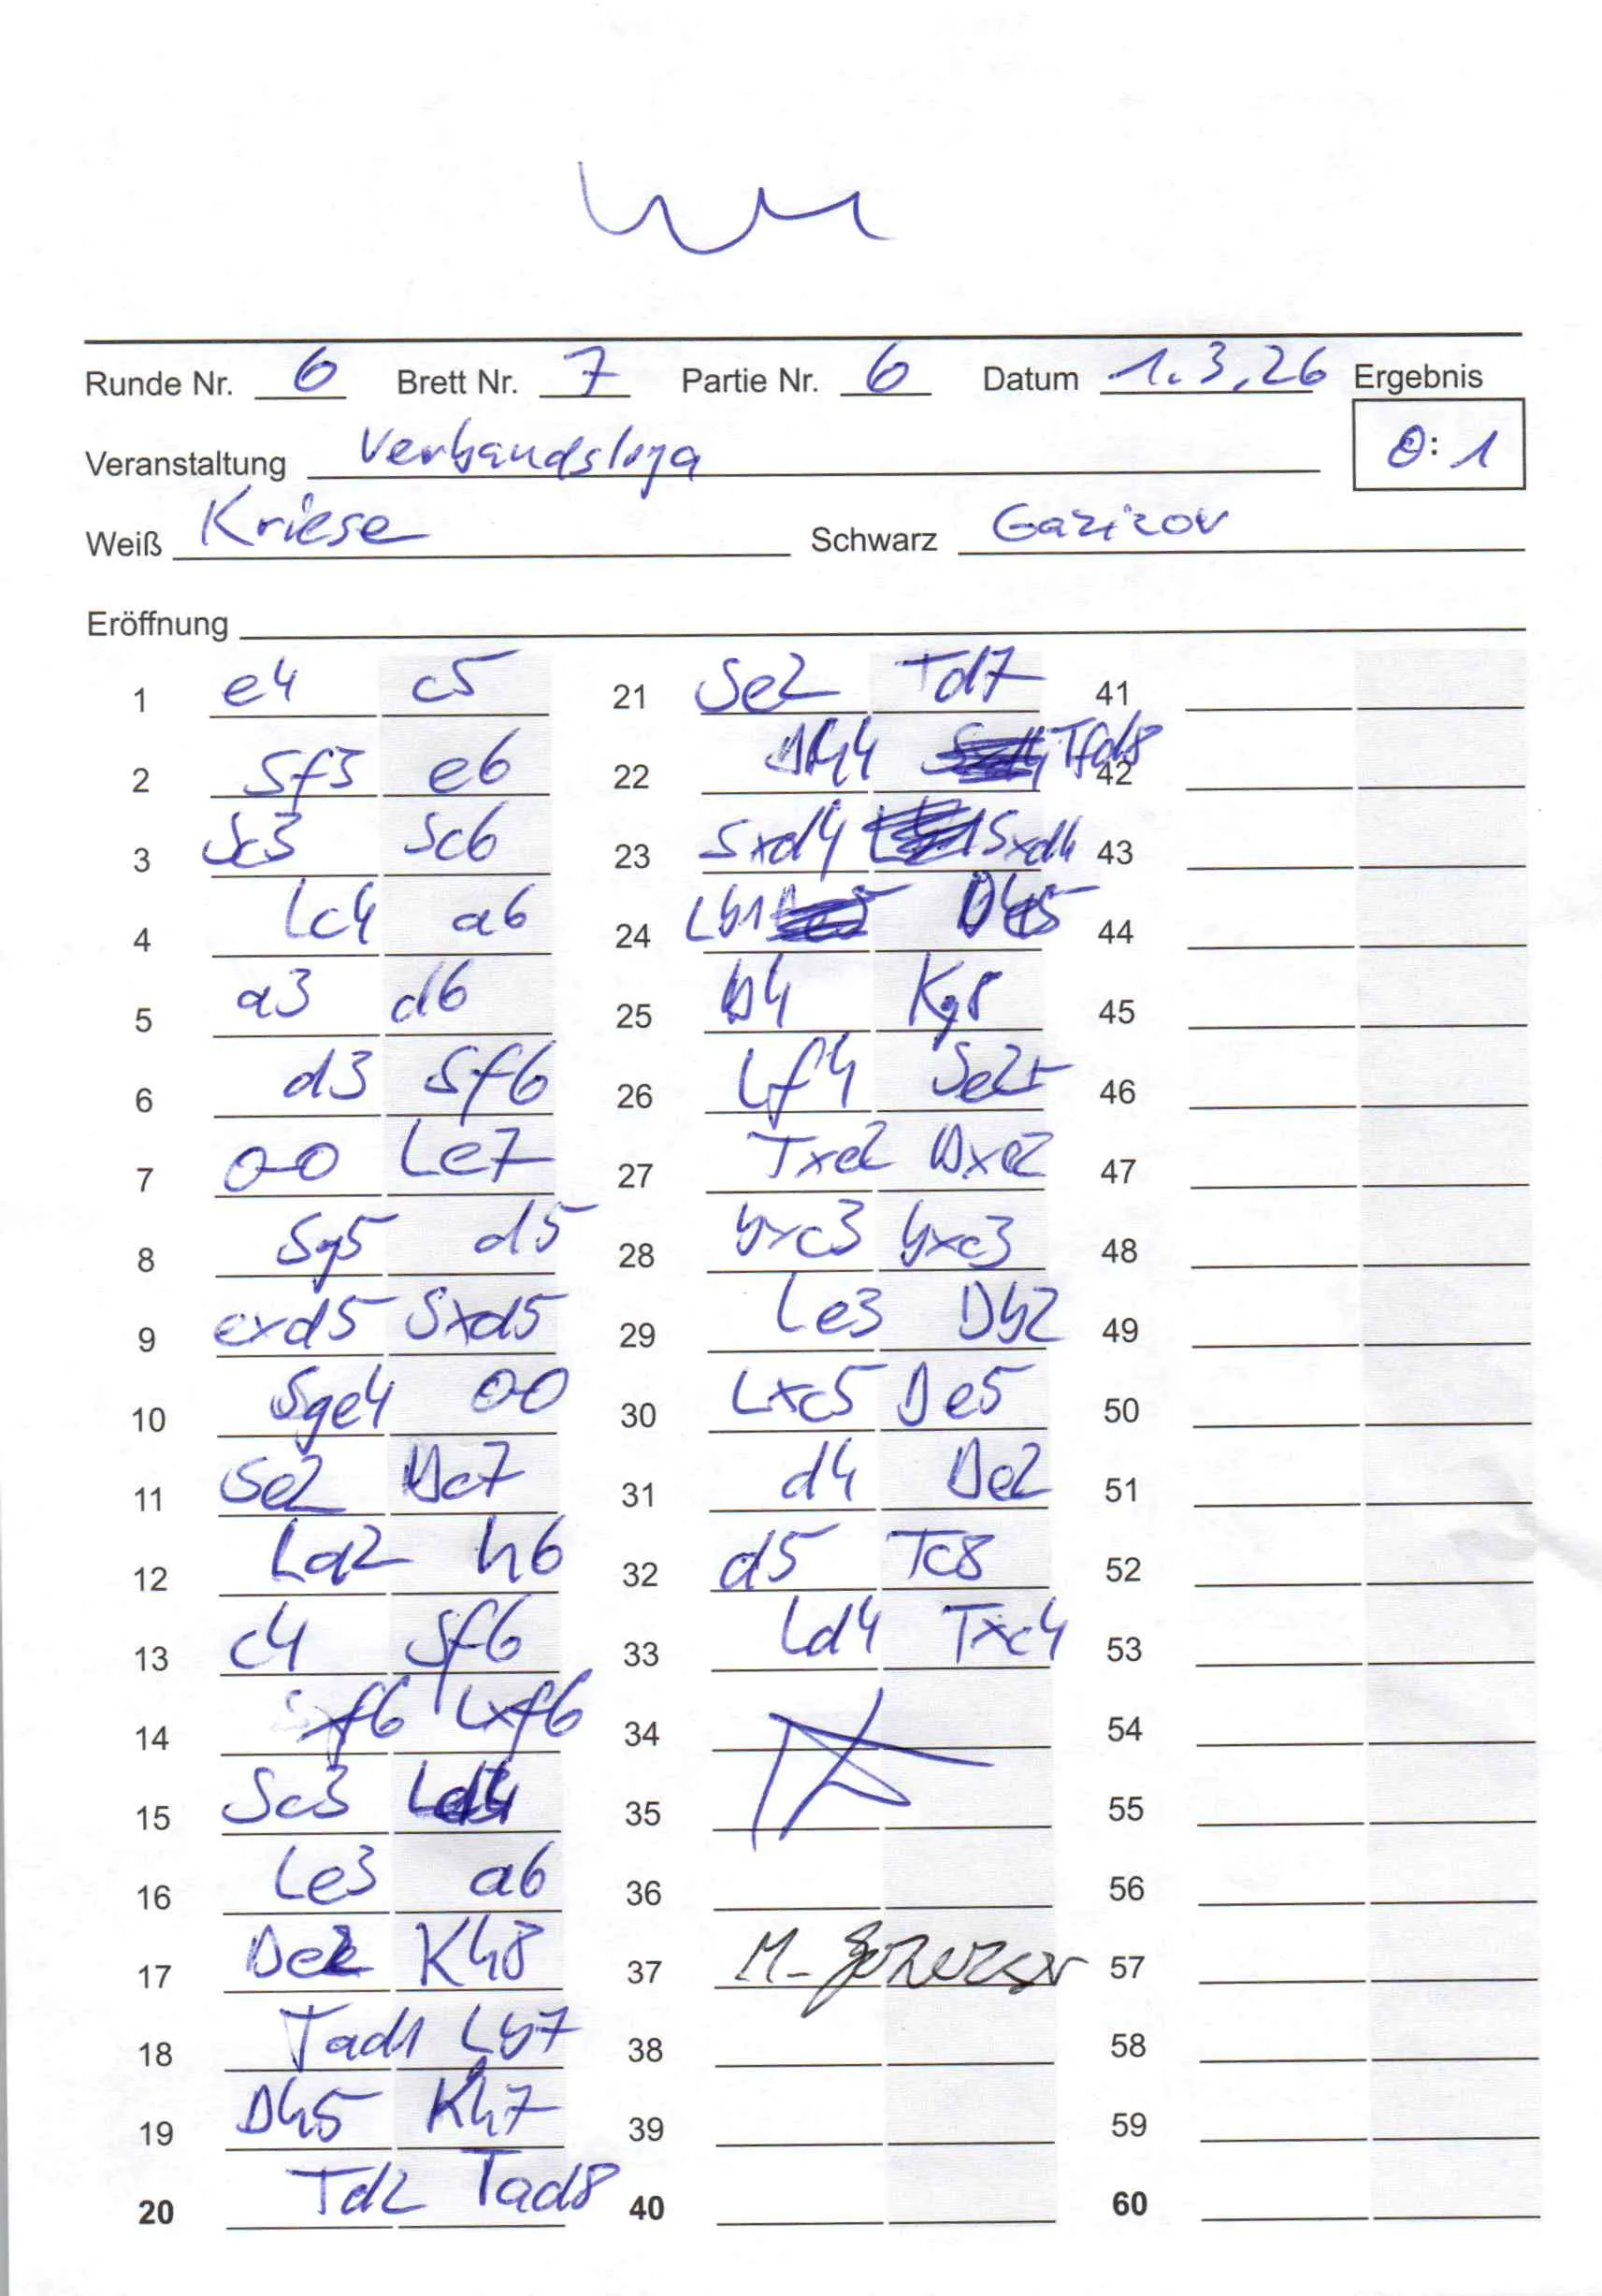 Runde Nr. 6 Brett Nr. 7 Partie Nr. 6 Datum 1.3.26 Ergebnis
0:1
Veranstaltung Verbandsliga
Weiß Kriese Schwarz Gazizov
Eröffnung
1 e4 c5
2 Sf3 e6
3 Sc3 Sc6
4 Lc4 a6
5 a3 d6
6 d3 Sf6
7 0-0 Le7
8 Sg5 d5
9 exd5 Sxd5
10 Sge4 00
11 Se2 Dc7
12 La2 h6
13 c4 Sf6
14 Sxf6 Lxf6
15 Sc3 Ld4
16 Le3 a6
17 De2 Kh8
18 Tad1 Lb7
19 Dh5 Kh7
20 Td2 Tad8
21 Se2 Td7
22 Dh4 Tfd8
23 Sxd4 Sxd4
24 Lb1
25 b4 Kg8
26 Lf4 Se2+
27 Txe2 Dxe2
28 bxc3 bxc3
29 Le3 Db2
30 Lxc5 De5
31 d4 De2
32 d5 Tc8
33 Ld4 Txc4
34
35
36
37
38
39
40
41
42
43
44
45
46
47
48
49
50
51
52
53
54
55
56
57
58
59
60